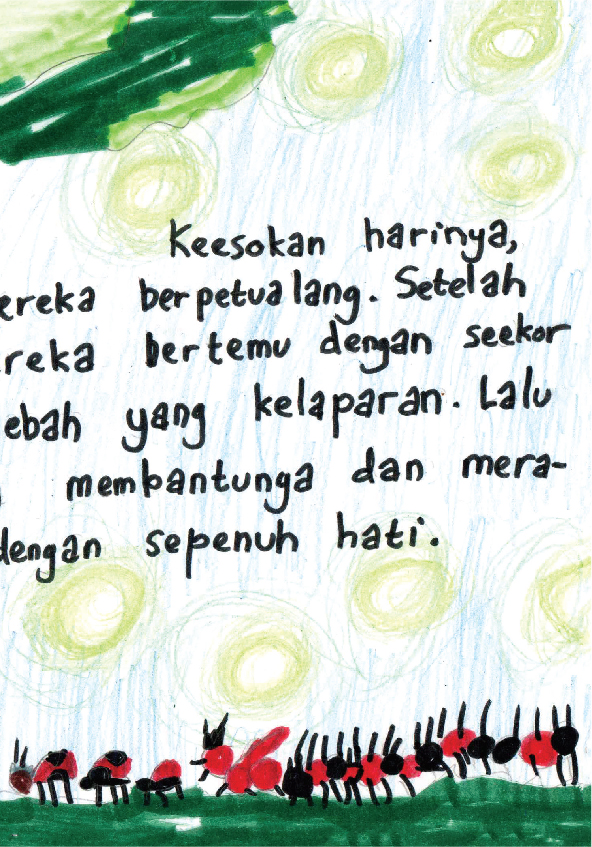 Keesokan harinya,
ereka berpetualang. Setelah
reka bertemu dengan seekor
ebah yang kelaparan. Lalu
membantunga dan mera-
dengan sepenuh hati.